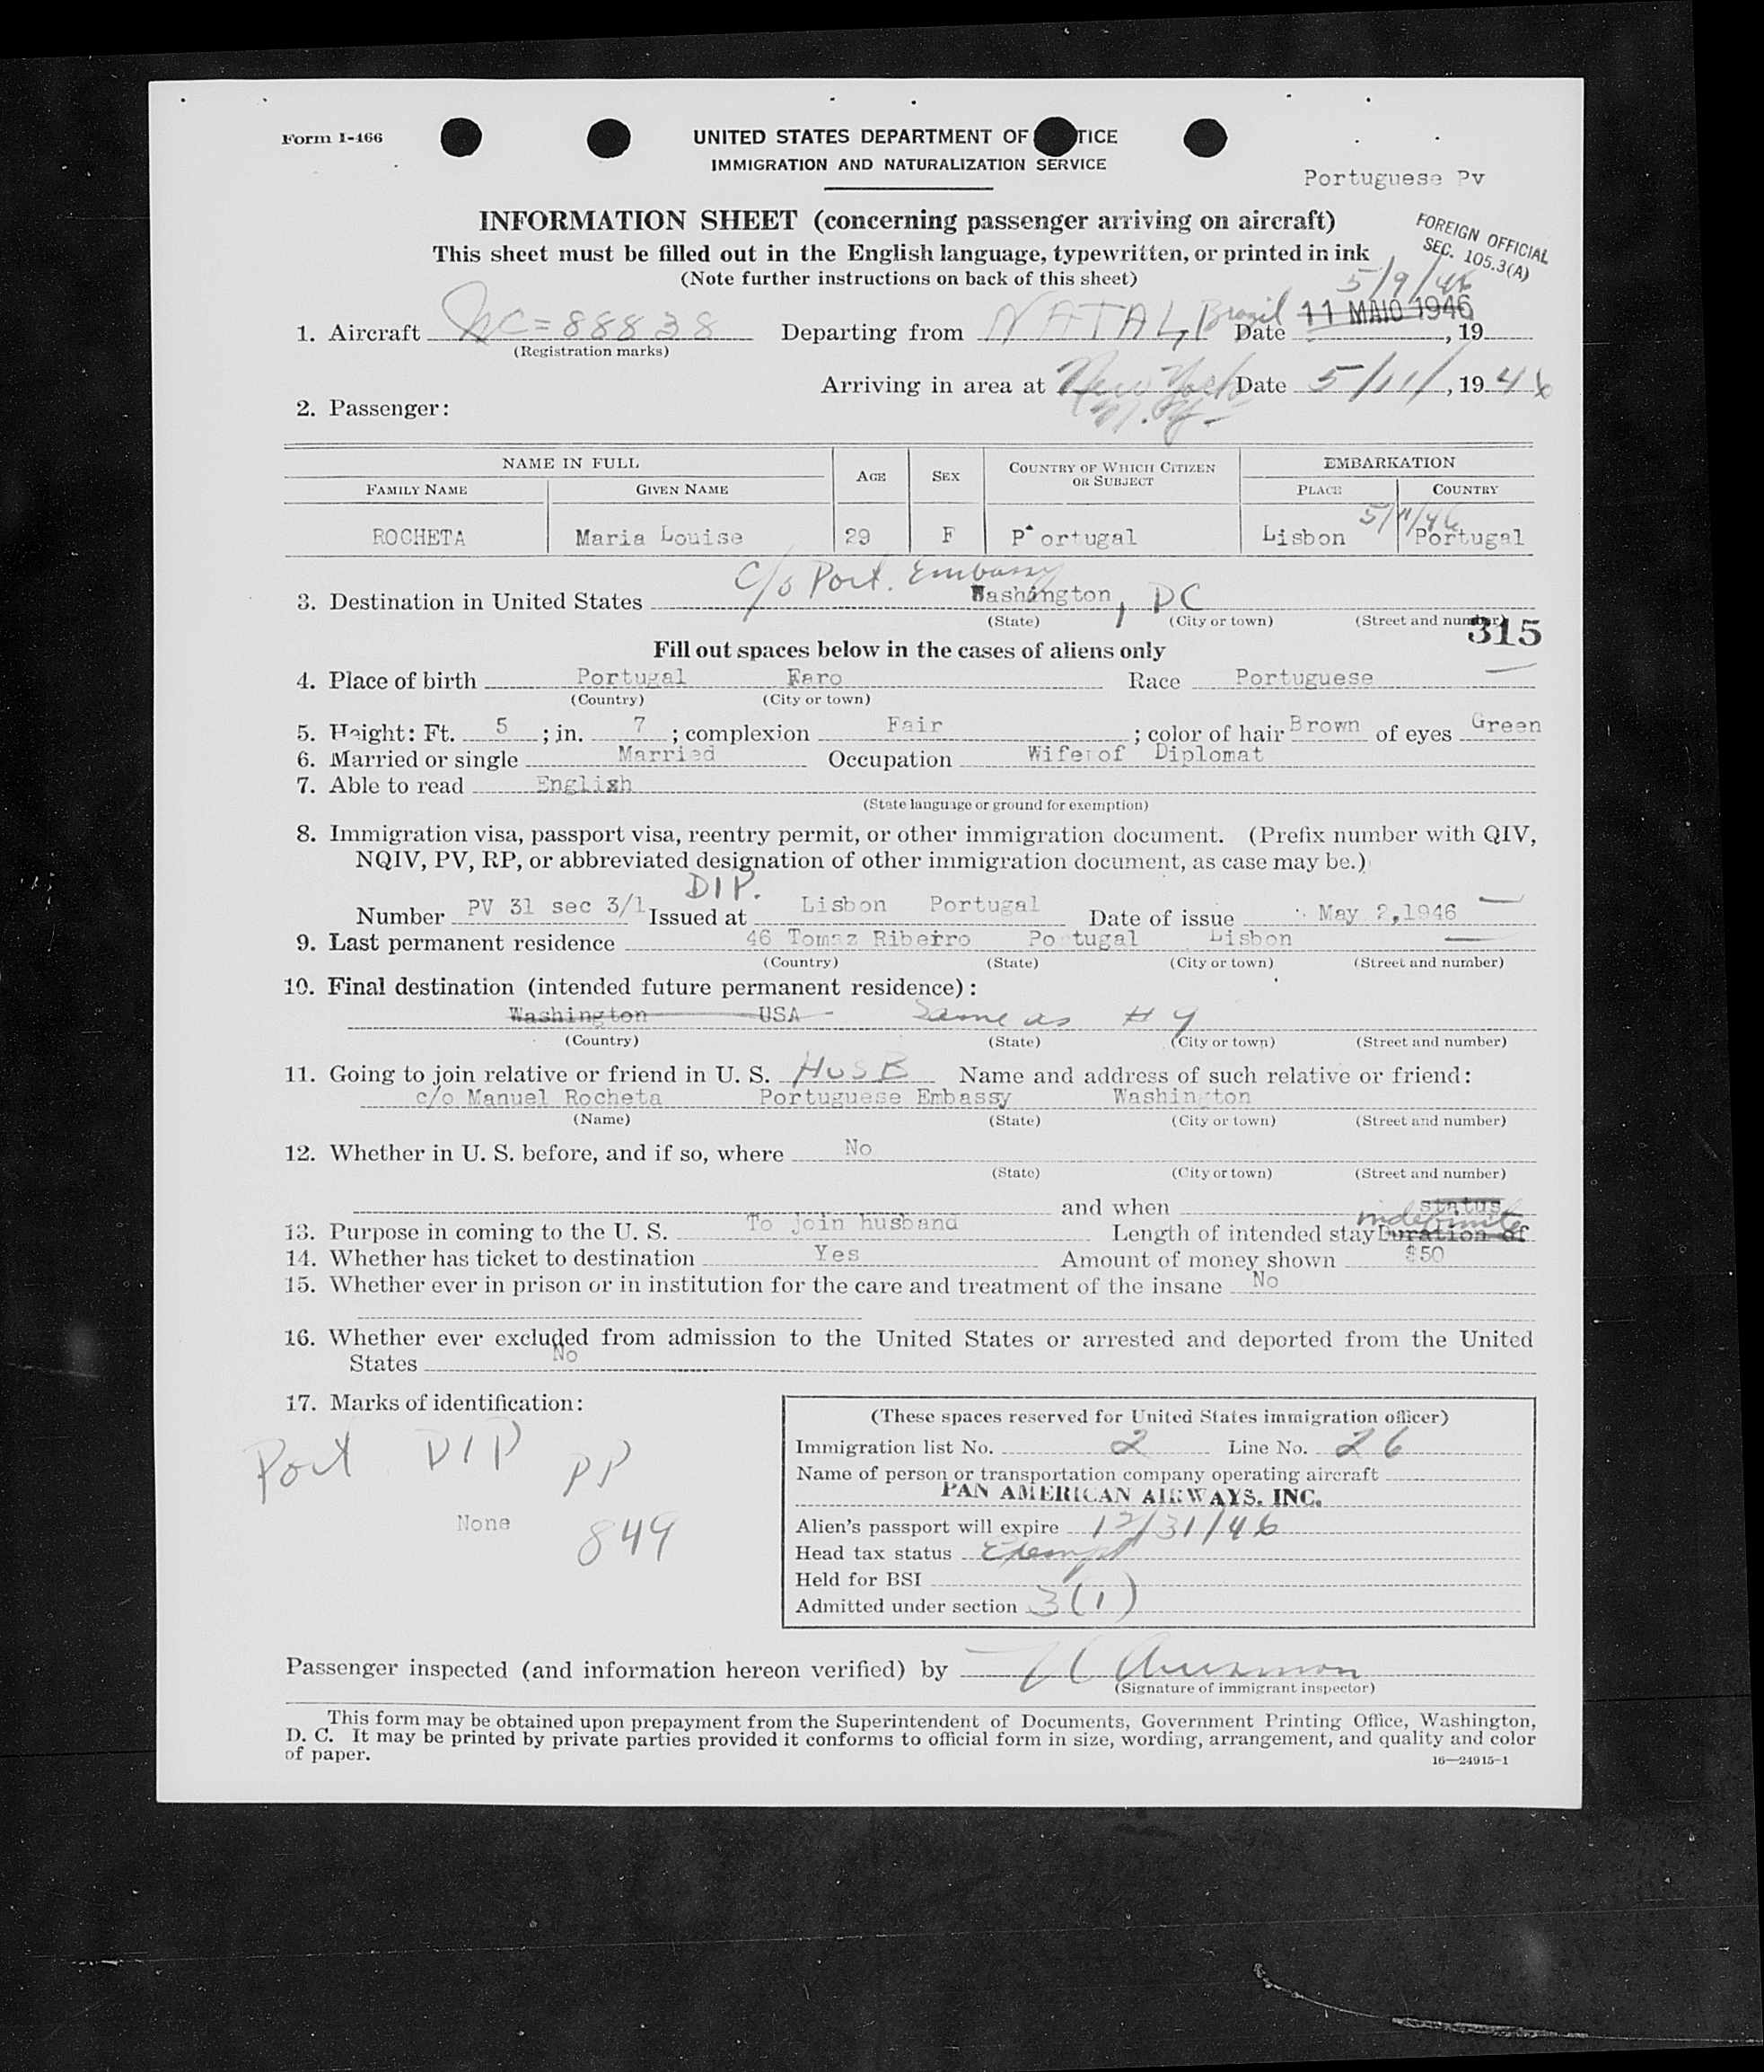 Form I-466
UNITED STATES DEPARTMENT OF TICE
IMMIGRATION AND NATURALIZATION SERVICE
Portuguese Pv
INFORMATION SHEET (concerning passenger arriving on aircraft)
FOREIGN OFFICIAL
SEC. 105.3(A)
This sheet must be filled out in the English language, typewritten, or printed in ink
(Note further instructions on back of this sheet)
5/9/46
1. Aircraft NC=88838 Departing from NATAL, Brazil Date 11 MAIO 1946, 19
(Registration marks)
Arriving in area at New York Date 5/11/, 1946
N.Y.
2. Passenger:
NAME IN FULL AGE SEX COUNTRY OF WHICH CITIZEN OR SUBJECT EMBARKATION
FAMILY NAME GIVEN NAME PLACE COUNTRY
5/11/46
ROCHETA Maria Louise 29 F P ortugal Lisbon Portugal
c/o Port. Embassy
3. Destination in United States Washington, DC
(State) (City or town) (Street and number)
315
Fill out spaces below in the cases of aliens only
4. Place of birth Portugal Faro Race Portuguese
(Country) (City or town)
5. Height: Ft. 5; in. 7; complexion Fair; color of hair Brown of eyes Green
6. Married or single Married Occupation Wife of Diplomat
7. Able to read English
(State language or ground for exemption)
8. Immigration visa, passport visa, reentry permit, or other immigration document. (Prefix number with QIV,
NQIV, PV, RP, or abbreviated designation of other immigration document, as case may be.)
DIP.
Number PV 31 sec 3/1 Issued at Lisbon Portugal Date of issue May 2,1946
9. Last permanent residence 46 Tomaz Ribeiro Po tugal Lisbon
(Country) (State) (City or town) (Street and number)
10. Final destination (intended future permanent residence):
Washington USA Same as # 9
(Country) (State) (City or town) (Street and number)
11. Going to join relative or friend in U. S. HUSB Name and address of such relative or friend:
c/o Manuel Rocheta Portuguese Embassy Washington
(Name) (State) (City or town) (Street and number)
12. Whether in U. S. before, and if so, where No
(State) (City or town) (Street and number)
and when status
indefinite
13. Purpose in coming to the U. S. To join husband Length of intended stay Duration of
14. Whether has ticket to destination Yes Amount of money shown $50
15. Whether ever in prison or in institution for the care and treatment of the insane No
16. Whether ever excluded from admission to the United States or arrested and deported from the United
States No
17. Marks of identification:
Port DIP PP
None 849
(These spaces reserved for United States immigration officer)
Immigration list No. 2 Line No. 26
Name of person or transportation company operating aircraft
PAN AMERICAN AIRWAYS, INC.
Alien's passport will expire 12/31/46
Head tax status Exempt
Held for BSI
Admitted under section 3(1)
Passenger inspected (and information hereon verified) by
(Signature of immigrant inspector)
This form may be obtained upon prepayment from the Superintendent of Documents, Government Printing Office, Washington,
D. C. It may be printed by private parties provided it conforms to official form in size, wording, arrangement, and quality and color
of paper.
16—24915-1